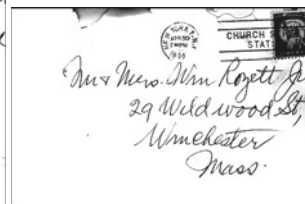 NEW YORK, N.Y.
APR 30
CHURCH S
STAT
Mr & Mrs. Wm Rozett Jr
29 Wildwood St,
Winchester
Mass.